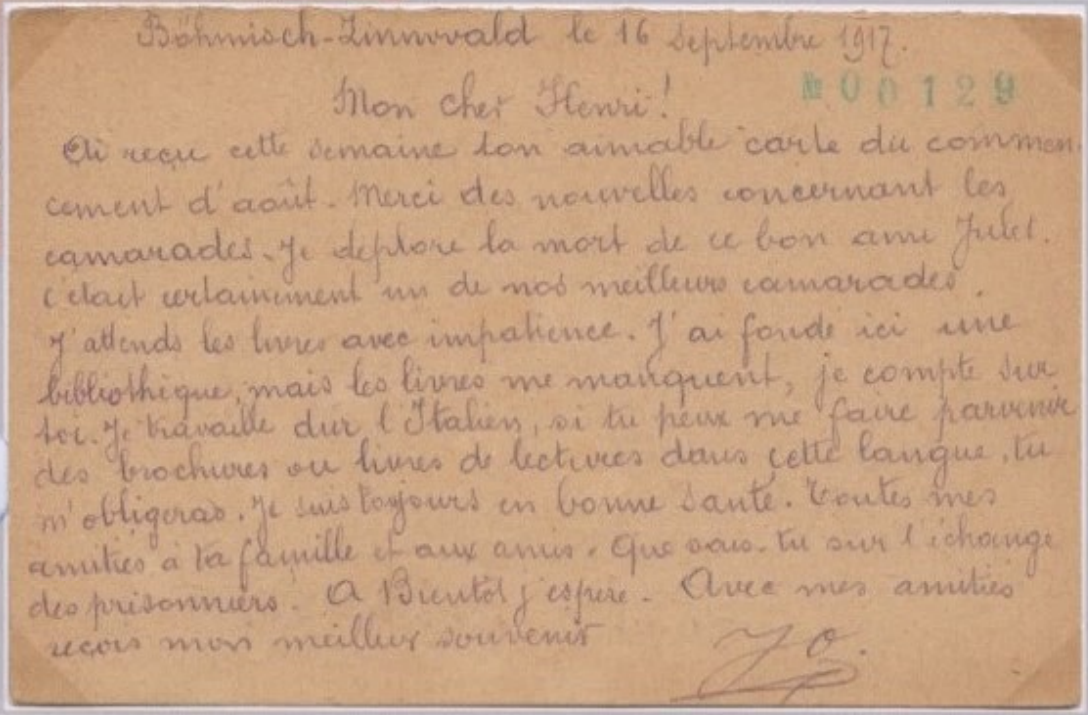 Böhmisch-Zinnwald le 16 Septembre 1917.
№ 00129
Mon cher Henri!
Ai reçu cette semaine ton aimable carte du commen-
cement d'août. Merci des nouvelles concernant les
camarades. Je deplore la mort de ce bon ami Jules.
C'etait certainement un de nos meilleurs camarades.
J'attends les livres avec impatience. J'ai fondé ici une
bibliothèque, mais les livres me manquent, je compte sur
toi. Je travaille dur l'Italien, si tu peux me faire parvenir
des brochures ou livres de lectures dans cette langue, tu
m'obligeras. Je suis toujours en bonne santé. Toutes mes
amitiés à ta famille et aux amis. Que sais-tu sur l'échange
des prisonniers. A Bientôt j'espère. Avec mes amitiés
reçois mon meilleur souvenir